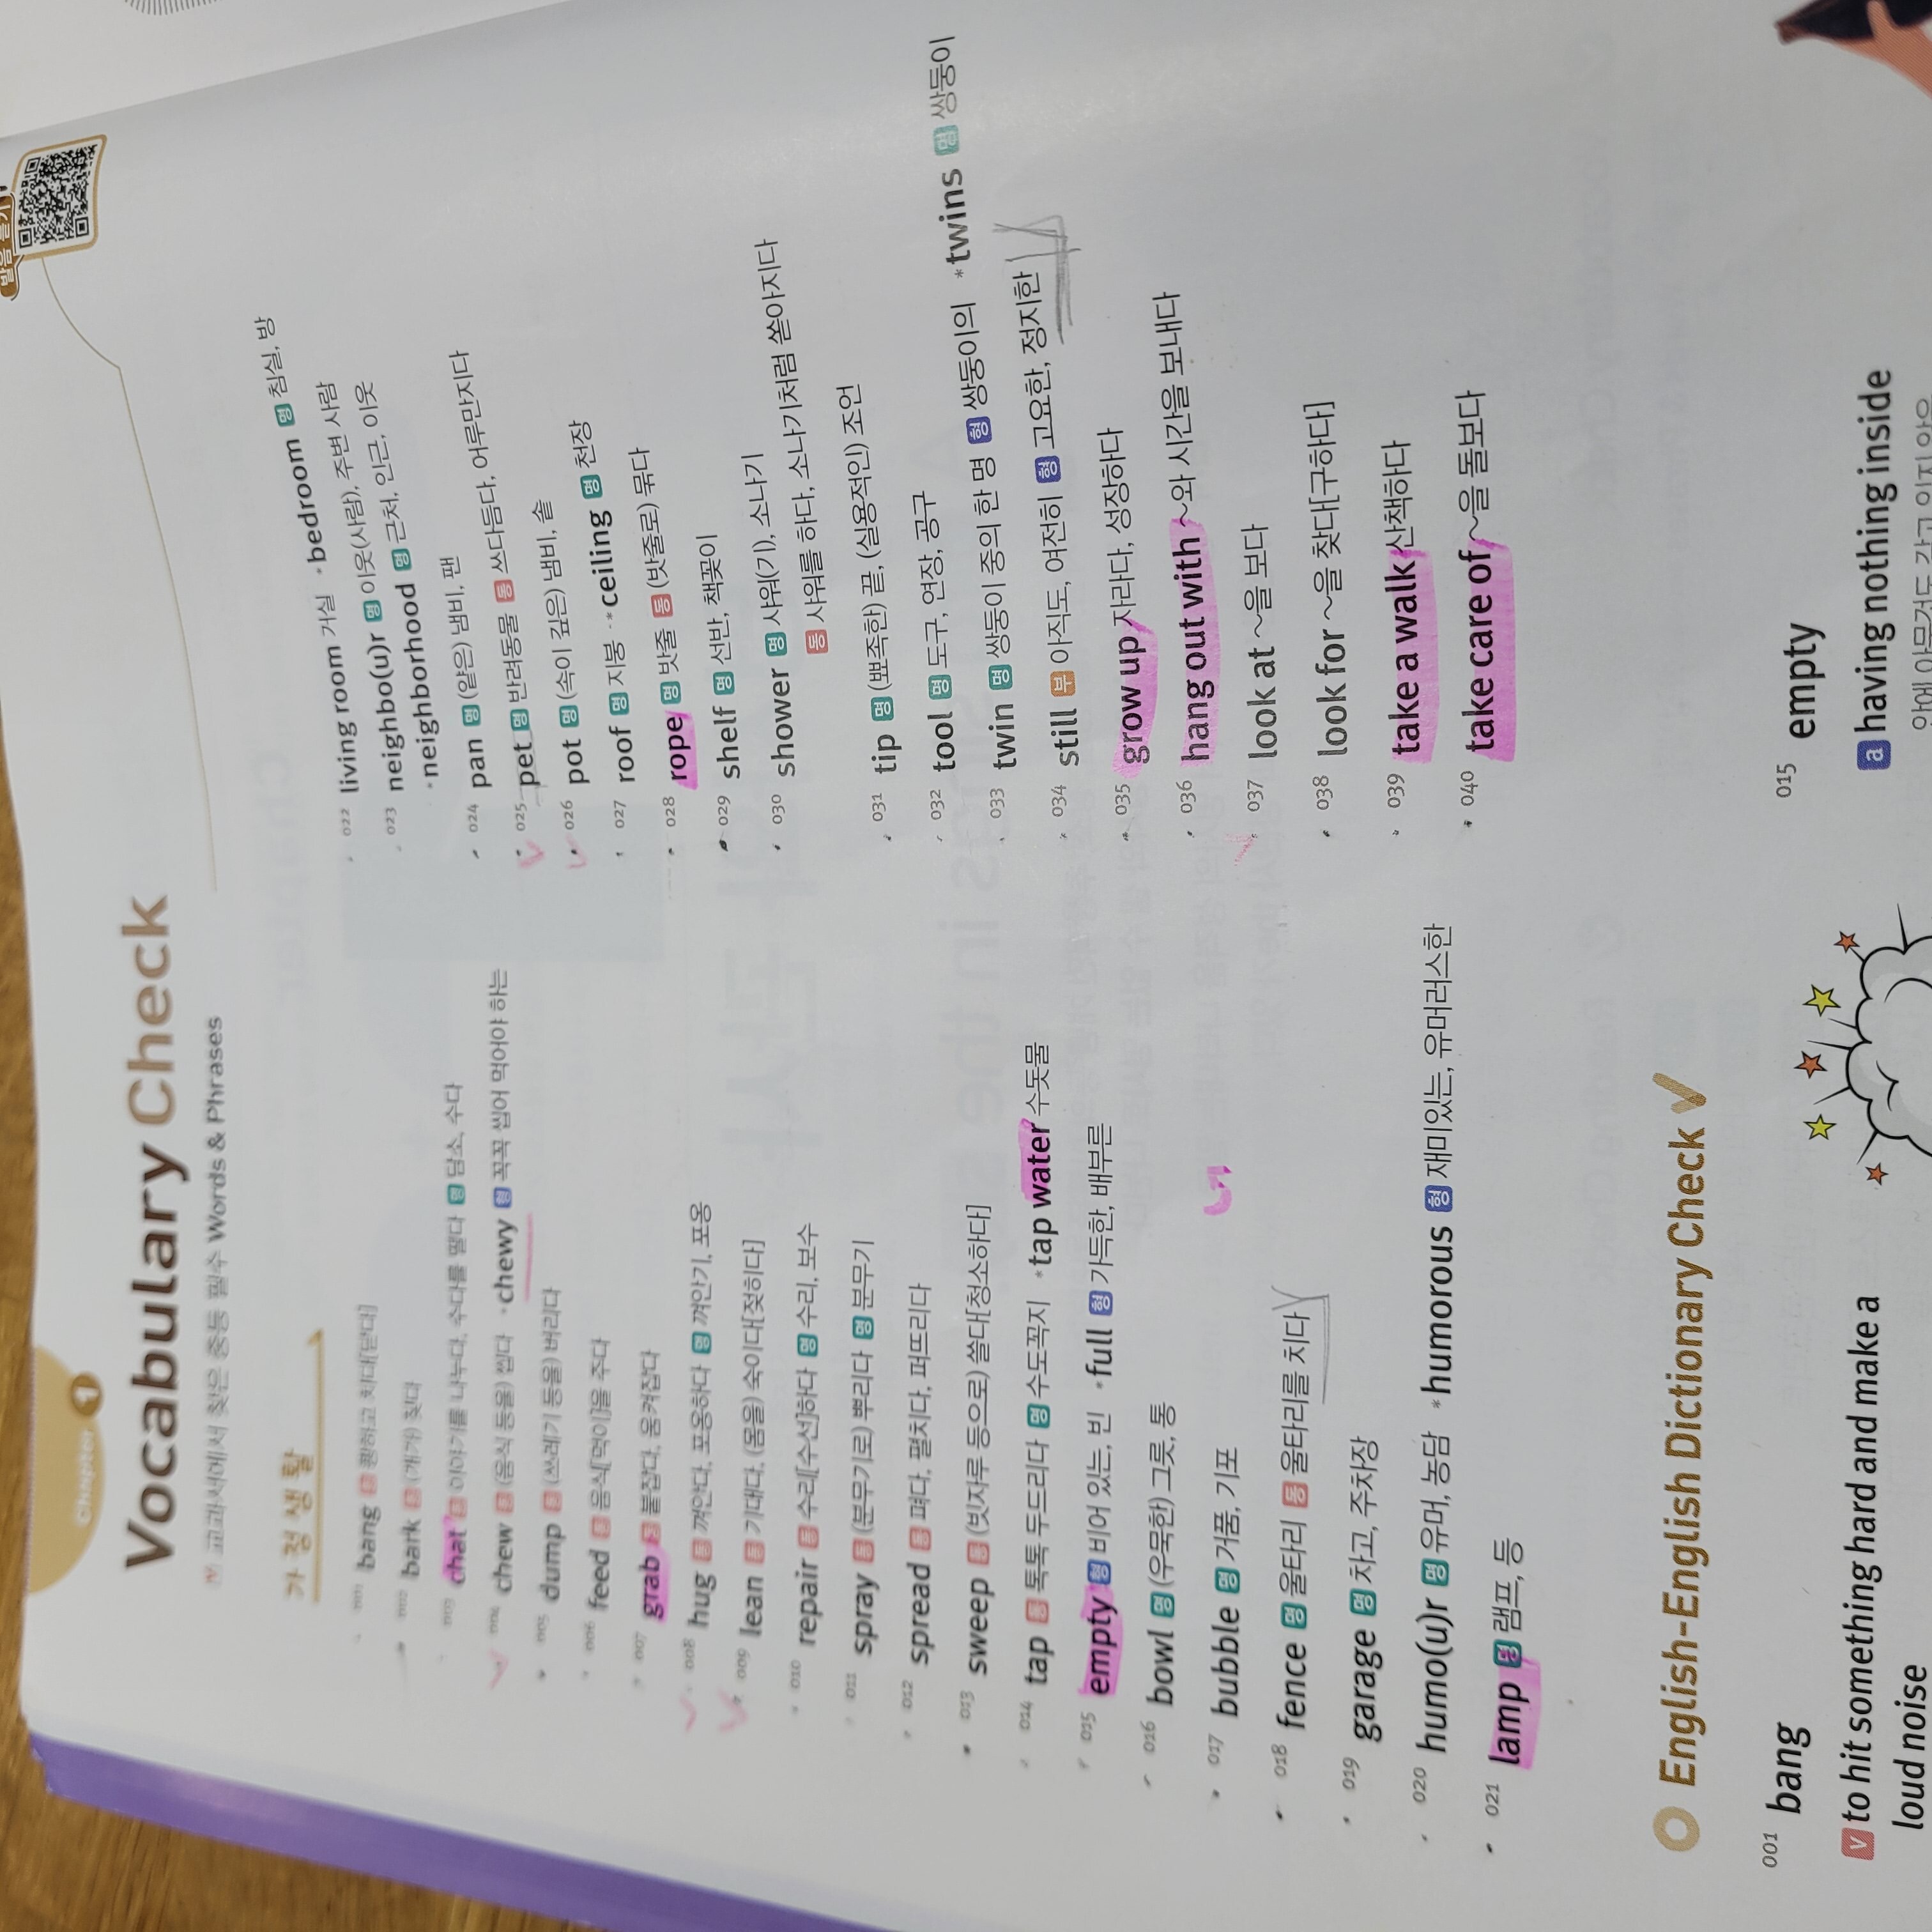 발음 듣기
Chapter 1
Vocabulary Check
Words & Phrases
가정 생활
001 bang 동 쾅하고 치다[닫다]
002 bark 동 (개가) 짖다
003 chat 동 이야기를 나누다, 수다를 떨다 명 담소, 수다
004 chew 동 (음식 등을) 씹다 *chewy 형 꼭꼭 씹어 먹어야 하는
005 dump 동 (쓰레기 등을) 버리다
006 feed 동 음식[먹이]을 주다
007 grab 동 붙잡다, 움켜잡다
008 hug 동 껴안다, 포옹하다 명 껴안기, 포옹
009 lean 동 기대다, (몸을) 숙이다[젖히다]
010 repair 동 수리[수선]하다 명 수리, 보수
011 spray 동 (분무기로) 뿌리다 명 분무기
012 spread 동 펴다, 펼치다, 퍼뜨리다
013 sweep 동 (빗자루 등으로) 쓸다[청소하다]
014 tap 동 톡톡 두드리다 명 수도꼭지 *tap water 수돗물
015 empty 형 비어 있는, 빈 *full 형 가득한, 배부른
016 bowl 명 (우묵한) 그릇, 통
017 bubble 명 거품, 기포
018 fence 명 울타리 동 울타리를 치다
019 garage 명 차고, 주차장
020 humo(u)r 명 유머, 농담 *humorous 형 재미있는, 유머러스한
021 lamp 명 램프, 등
022 living room 거실 *bedroom 명 침실, 방
023 neighbo(u)r 명 이웃(사람), 주변 사람
*neighborhood 명 근처, 인근, 이웃
024 pan 명 (얕은) 냄비, 팬
025 pet 명 반려동물 동 쓰다듬다, 어루만지다
026 pot 명 (속이 깊은) 냄비, 솥
027 roof 명 지붕 *ceiling 명 천장
028 rope 명 밧줄 동 (밧줄로) 묶다
029 shelf 명 선반, 책꽂이
030 shower 명 샤워(기), 소나기
동 샤워를 하다, 소나기처럼 쏟아지다
031 tip 명 (뾰족한) 끝, (실용적인) 조언
032 tool 명 도구, 연장, 공구
033 twin 명 쌍둥이 중의 한 명 형 쌍둥이의 *twins 명 쌍둥이
034 still 부 아직도, 여전히 형 고요한, 정지한
035 grow up 자라다, 성장하다
036 hang out with ~와 시간을 보내다
037 look at ~을 보다
038 look for ~을 찾다[구하다]
039 take a walk 산책하다
040 take care of ~을 돌보다
English-English Dictionary Check
001 bang
v to hit something hard and make a
loud noise
015 empty
a having nothing inside